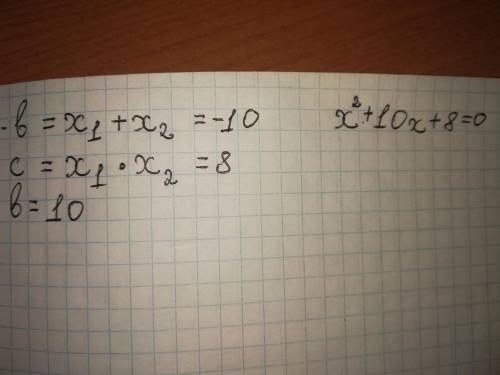 -b = x₁ + x₂ = -10
x² + 10x + 8 = 0
c = x₁ · x₂ = 8
b = 10